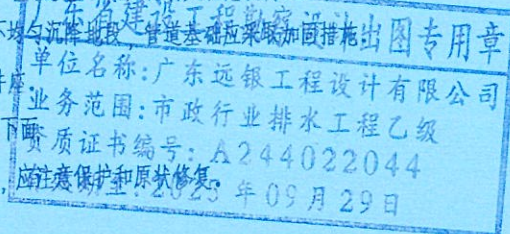 广东省建设工程勘察设计出图专用章
不均匀沉降地段，管道基础应采取加固措施；
单位名称：广东远银工程设计有限公司
井座；
业务范围：市政行业排水工程乙级
下面
资质证书编号：A244022044
，应注意保护和原状修复；
2023年09月29日